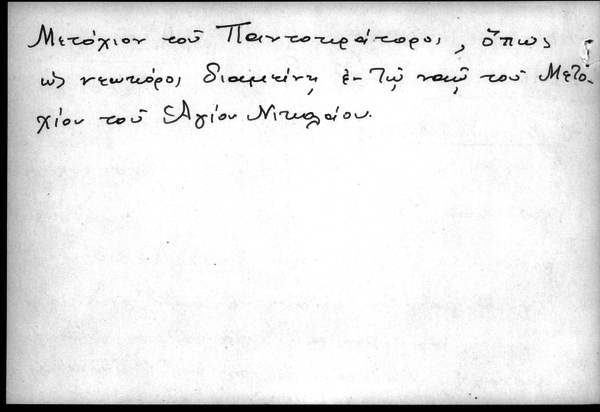 Μετόχιον τοῦ Παντοκράτορος, ὅπως
ὡς νεωκόρος διαμείνῃ ἐν τῷ ναῷ τοῦ Μετο-
χίου τοῦ Ἁγίου Νικολάου.